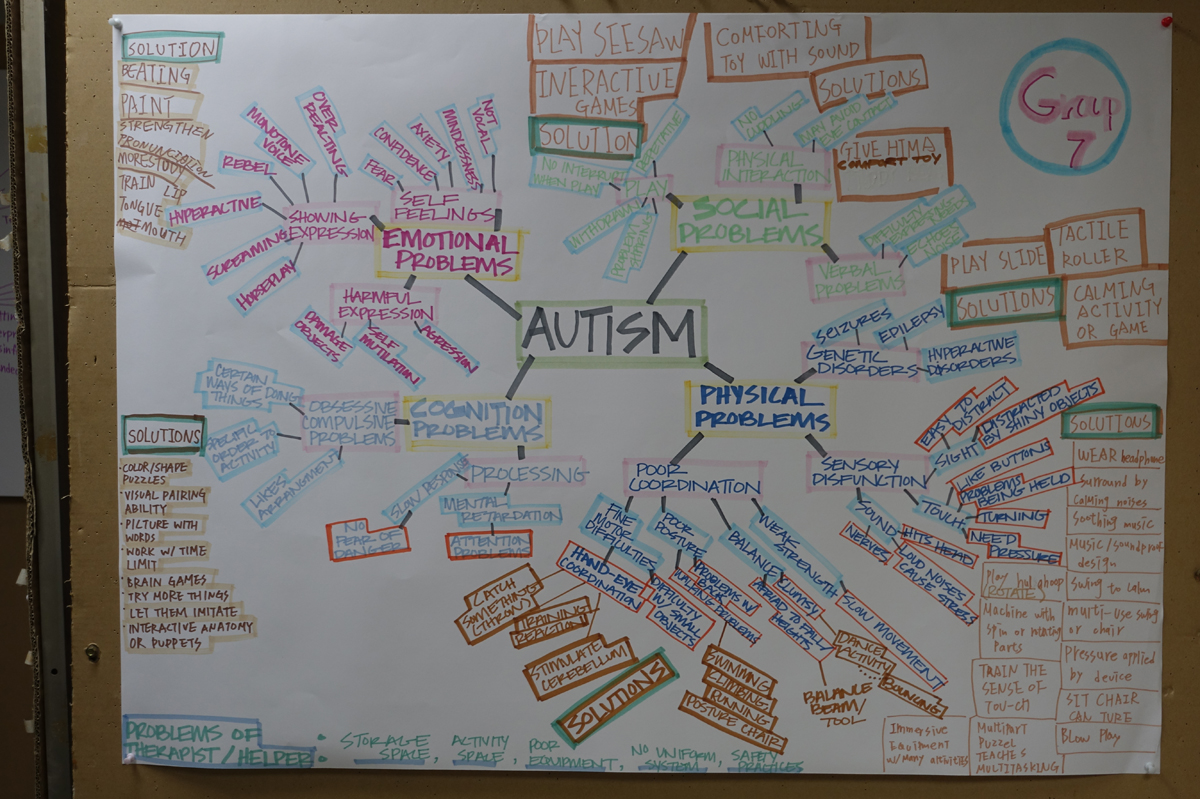 SOLUTION
BEATING
PAINT
STRENGTHEN
PRONUNCIATION
MORESTUDY
TRAIN LIP
TONGUE
MOUTH
OVER
REACTING
MONOTONE
VOICE
REBEL
HYPERACTIVE
SCREAMING
HORSEPLAY
SHOWING
EXPRESSION
FEAR
CONFIDENCE
AXIETY
MINDLESSNESS
NOT
VOCAL
SELF
FEELINGS
EMOTIONAL
PROBLEMS
HARMFUL
EXPRESSION
DAMAGE
OBJECTS
SELF
MUTILATION
AGRESSION
PLAY SEESAW
INERACTIVE
GAMES
SOLUTION
NO INTERRUPT
WHEN PLAY
PLAY
WITHDRAWN
PROBLEM
SHARING
COMFORTING
TOY WITH SOUND
SOLUTIONS
MAY AVOID
EYE CONTACT
PHYSICAL
INTERACTION
GIVE HIM A
COMFORT TOY
SOCIAL
PROBLEMS
VERBAL
PROBLEMS
Group
7
PLAY SLIDE
TACTILE
ROLLER
SOLUTIONS
CALMING
ACTIVITY
OR GAME
AUTISM
SEIZURES
EPILEPSY
GENETIC
DISORDERS
HYPERACTIVE
DISORDERS
PHYSICAL
PROBLEMS
CERTAIN
WAYS OF DOING
THINGS
SPECIFIC
ORDER TO
ACTIVITY
LIKES
ARRANGMENT
OBSESSIVE
COMPULSIVE
PROBLEMS
COGNITION
PROBLEMS
PROCESSING
SLOW RESPONSE
NO
FEAR OF
DANGER
MENTAL
RETARDATION
ATTENTION
PROBLEMS
SOLUTIONS
• COLOR/SHAPE
PUZZLES
• VISUAL PAIRING
ABILITY
• PICTURE WITH
WORDS
• WORK W/ TIME
LIMIT
• BRAIN GAMES
• TRY MORE THINGS
• LET THEM IMITATE
• INTERACTIVE ANATOMY
OR PUPPETS
POOR
COORDINATION
FINE
MOTOR
DIFFICULTIES
HAND-EYE
COORDINATION
POOR
POSTURE
DIFFICULTY
W/ SMALL
OBJECTS
PROBLEMS W/
BALANCE
CLUMSY
AFRAID TO FALL/
HEIGHTS
WEAK
STRENGTH
SLOW MOVEMENT
CATCH
SOMETHING
(THROW)
TRAINING
REACTION
STIMULATE
CEREBELLUM
SOLUTIONS
SWIMMING
CLIMBING
RUNNING
POSTURE CHAIR
DANCE
ACTIVITY
BOUNCING
BALANCE
BEAM/
TOOL
SENSORY
DISFUNCTION
EASY TO
DISTRACT
SIGHT
DISTRACTED
BY SHINY OBJECTS
TOUCH
LIKE BUTTONS
PROBLEMS
BEING HELD
TURNING
NEED
PRESSURE
SOUND
NERVES
HITS HEAD
LOUD NOISES
CAUSE STRESS
SOLUTIONS
WEAR headphone
Surround by
calming noises
Soothing music
Music/soundproof
design
Play hulahoop
(ROTATE)
Swing to calm
Machine with
spin or rotating
Parts
multi-use swing
or chair
Pressure applied
by device
TRAIN THE
SENSE OF
TOU-CH
SIT CHAIR
CAN TURE
Blow Play
Immersive
Equipment
w/ many abilities
Multipart
Puzzel
TEACHES
MULTITASKING
PROBLEMS OF
THERAPIST/HELPER:
STORAGE
SPACE,
ACTIVITY
SPACE,
POOR
EQUIPMENT,
NO UNIFORM
SYSTEM,
SAFETY
PRACTICES